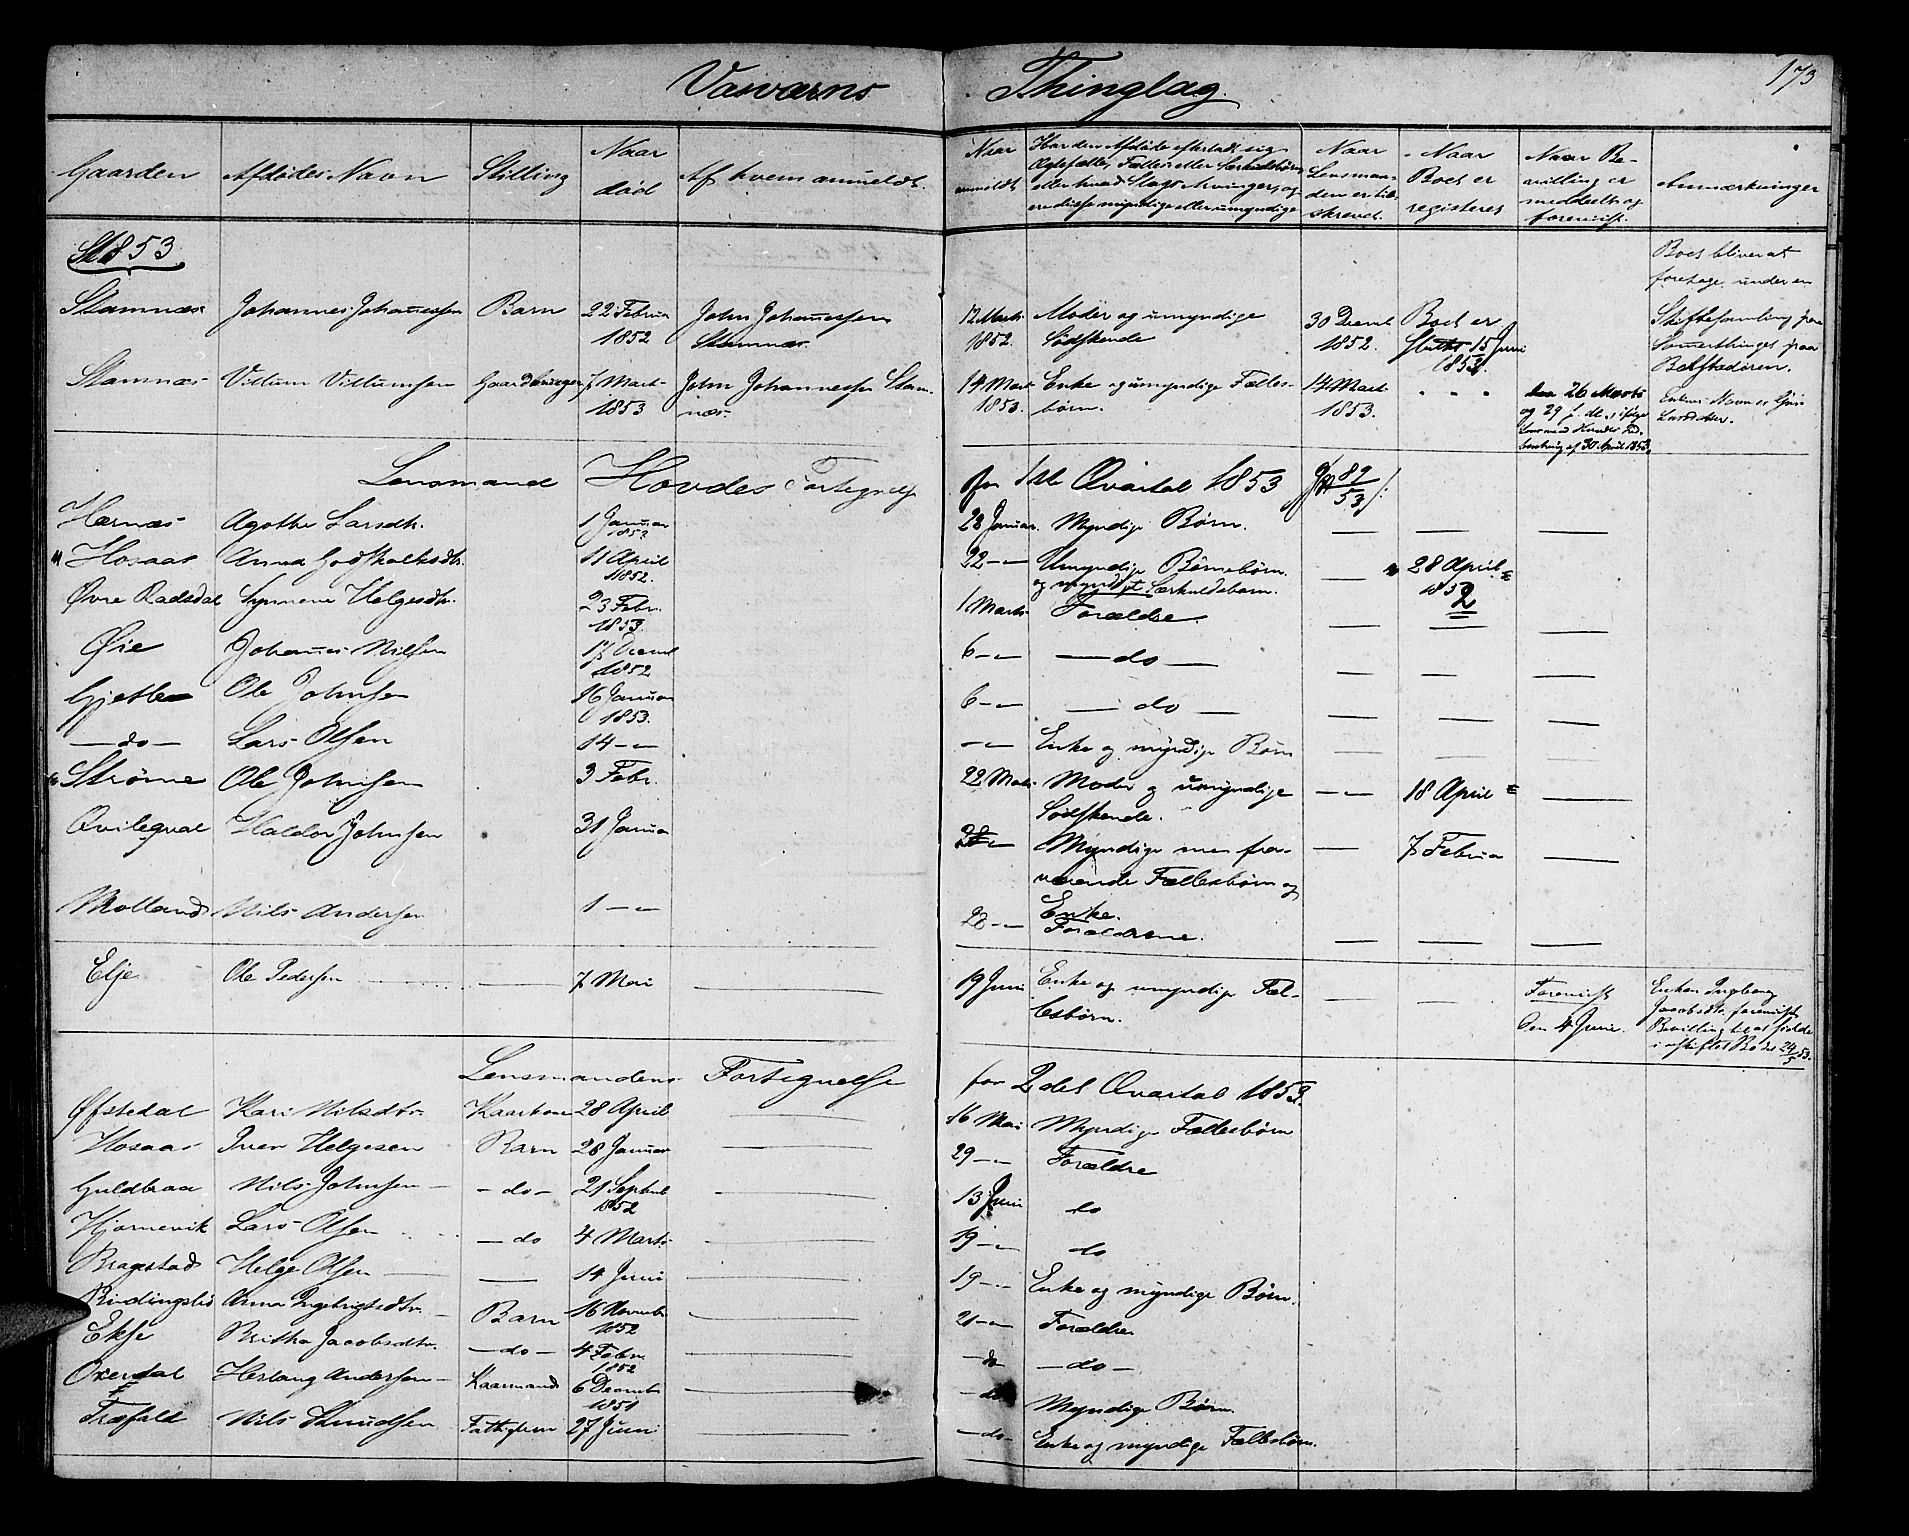 Vasværns Thinglag. 173
Gaarden | Afdødes Navn | Stilling | Naar død | Af hvem anmeldt. | Naar anmeldt. | Har den Afdøde efterladt sig Ægtefælle, Fælles eller Særkuldsbørn, eller hvad Slags Arvinger, og ere disse myndige eller umyndige | Naar Lensmanden er tilskrevet. | Naar Boet er registeret | Naar Bevilling er meddeelt og forevist. | Anmærkninger
1853.
Stamnæs | Johannes Johannessen | Barn | 22 Februar 1852 | John Johannessen Stamnæs | 12 Marts 1852. | Moder og umyndige Sødskende | 30 Decmb 1852. | Boet er sluttet 15 Juni 1852. | | Boet bliver at foretage under en Skiftesamling paa Sommerthinget paa
Stamnæs | Villum Villumsen | Gaardbruger | 7 Mart 1853 | John Johannessen Stamnæs | 14 Mart 1853. | Enke og umyndige Fællesbørn. | 14 Mart 1853. | " " " | den 26 Marts og 29 s. M. ifølge Lensmand af 30 April 1853 | Enkens Navn er Larsdatter.
Lensmand Hovdes Fortegnelse for 1ste Qvartal 1853 89/53
Hernæs | Agathe Larsdtr. | 1 Januar 1852 | 28 Januar. | Myndige Børn. | — | — | —
Hosaas | Anna Godskalksdtr. | 11 April 1852. | 22 —"— | Umyndige Børnebørn og myndigt Særkuldsbarn. | — | 28 April 1852
Øvre Radsdal | Synneve Helgesdtr. | 23 Febr. 1853. | 1 Marts | Forældre. | — | — | —
Øie | Johannes Nilsen | 17 Decmb 1852 | 6 —"— | — do — | — | — | —
Gjetle | Ole Johnsen | 16 Januar 1853. | 6 —"— | — do — | — | — | —
— do — | Lars Olsen | 14 —"— | —"— | Enke og myndige Børn | — | — | —
Strøme | Ole Johnsen | 3 Febr. | 22 Marts | Moder og umyndige Sødskende. | —"— | 18 April | —
Qvilegval | Haldor Johnsen | 31 Januar | 28 —"— | Myndige men fraværende Fællesbørn og Enke. | — | 7 Februar | —
Molland | Nils Andersen | 1 —"— | 28 —"— | Forældrene. | — | — | —
Elje | Ole Pedersen | — | 7 Mai | — | 19 Juni | Enke og umyndige Fællesbørn. | — | — | Forevist den 4 Juni. | Enken Ingborg Jacobsdtr. forevist Bevilling til at sidde i uskiftet Bo dt 24/5 53.
Lensmandens Fortegnelse for 2det Qvartal 1853.
Øfstedal | Kari Nilsdtr | Kaarkone | 28 April | — | 16 Mai | Myndige Fællesbørn
Hosaas | Iver Helgesen | Barn | 28 Januar | — | 29 —"— | Forældre
Guldbraa | Nils Johnsen | — do — | 21 Septmb 1852 | — | 13 Juni | do
Hjørnevik | Lars Olsen | — do | 4 Marts | — | 19 —"— | do
Bragstad | Helge Olsen | — | 14 Juni | — | 19 —"— | Enke og myndige Børn.
Birdingslid | Anna Ingebrigtsdtr. | Barn | 16 Novmbr 1852 | — | 21 —"— | Forældre
Ekse | Britha Jacobsdtr. | — do — | 4 Febr. 1852 | — | — do — | — do —
Oxendal | Herlaug Andersen | Kaarmand | 6 Decmbr 1851 | — | — do — | Myndige Børn.
Træfald | Nils Knudsen | Fattiglem | 27 Juni | — | — do — | Enke og myndige Fællesbørn.